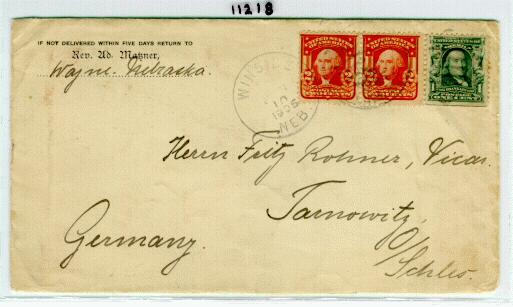 11218
IF NOT DELIVERED WITHIN FIVE DAYS RETURN TO
Rev. Ad. Matzner,
Wayne, Nebraska.
WINSIDE
1906
NEB.
UNITED STATES OF AMERICA
2 2
UNITED STATES OF AMERICA
2 2
1 1
ONE CENT
Herrn Fritz Rohner, Vicar.
Tarnowitz,
O/Schles.
Germany.